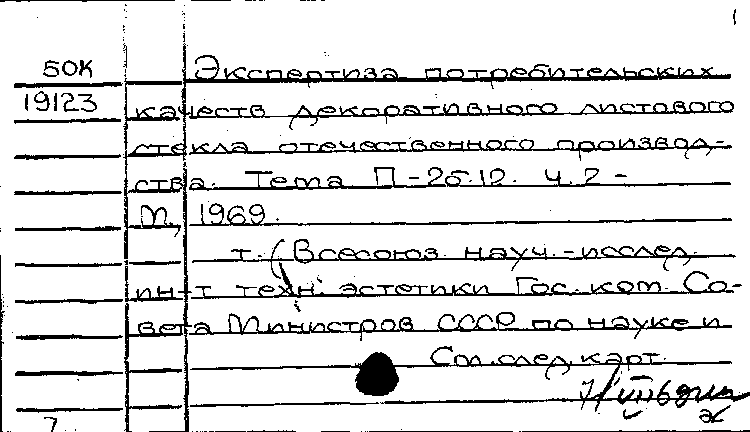 1
БОК
Экспертиза потребительских
19123
качеств декоративного листового
стекла отечественного производ-
ства. Тема П-25.12. ч.2 -
М, 1969.
т. (Всесоюз. науч.-исслед.
ин-т техн. эстетики Гос. ком. Со-
вета Министров СССР по науке и
См.след.карт.
7